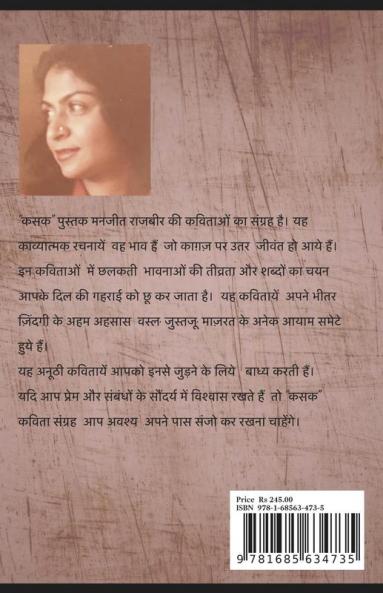 "कसक" पुस्तक मनजीत राजबीर की कविताओं का संग्रह है। यह
काव्यात्मक रचनायें वह भाव हैं जो काग़ज़ पर उतर जीवंत हो आये हैं।
इन कविताओं में छलकती भावनाओं की तीव्रता और शब्दों का चयन
आपके दिल की गहराई को छू कर जाता है। यह कवितायें अपने भीतर
ज़िंदगी के अहम अहसास वस्ल जुस्तजू माज़रत के अनेक आयाम समेटे
हुये हैं।
यह अनूठी कवितायें आपको इनसे जुड़ने के लिये बाध्य करती हैं।
यदि आप प्रेम और संबंधों के सौंदर्य में विश्वास रखते हैं तो "कसक"
कविता संग्रह आप अवश्य अपने पास संजो कर रखना चाहेंगे।
Price Rs 245.00
ISBN 978-1-68563-473-5
9 781685 634735